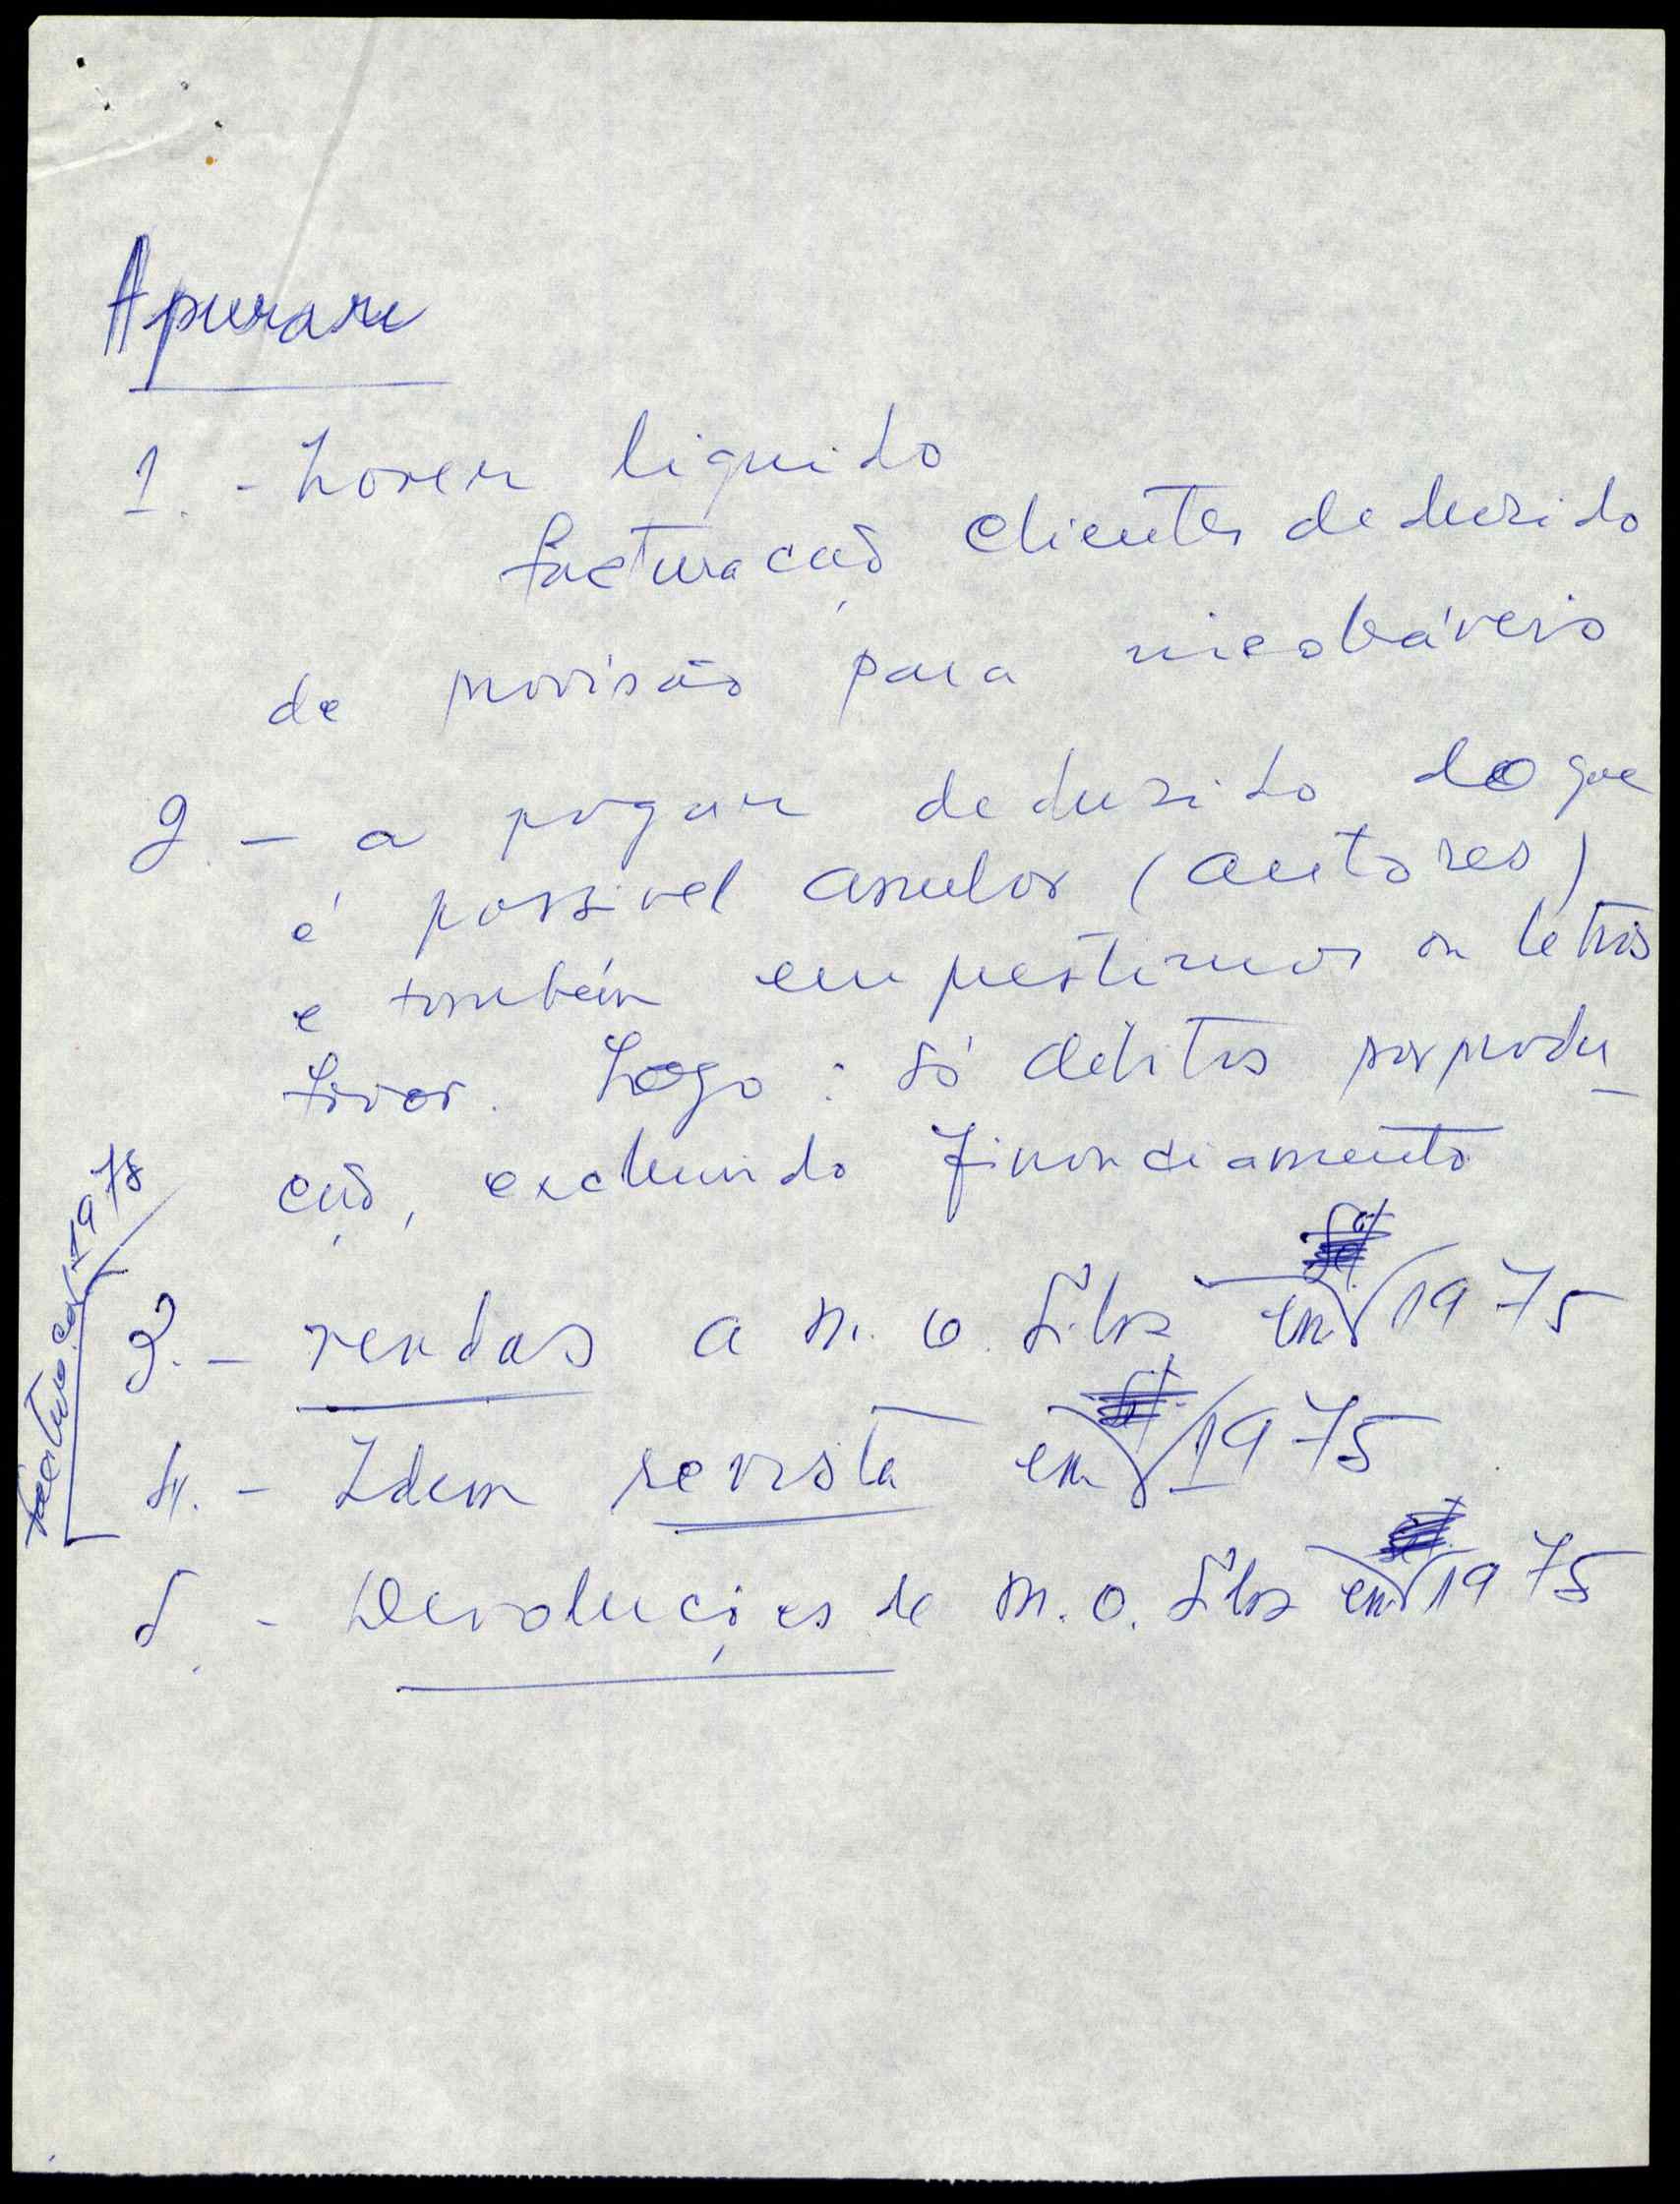 Apurar
1. - haver liquido
facturação clientes deduzido
de provisão para incobráveis
2 - a pagar deduzido do que
é possivel anular (autores)
e também emprestimos ou letras
favor. Logo: só debitos por produ-
ção, excluindo financiamento
3. - rendas a M. O. Silva em 1975
4. - Idem revista em 1975
5 - Devoluções de M. O. Silva em 1975
facturação 1975